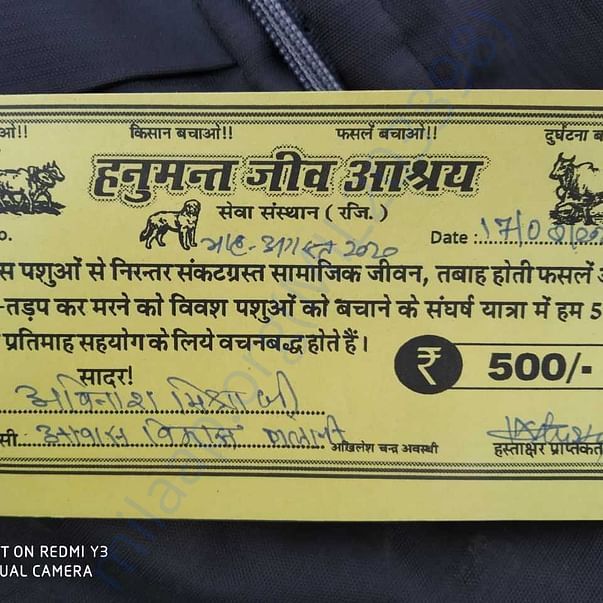 ओ!! किसान बचाओ!! फसलें बचाओ!! दुर्घटना ब
हनुमन्त जीव आश्रय
सेवा संस्थान ( रजि. )
o. माह - अगस्त 2020 Date : 17/08/20
स पशुओं से निरन्तर संकटग्रस्त सामाजिक जीवन, तबाह होती फसलें
-तड़प कर मरने को विवश पशुओं को बचाने के संघर्ष यात्रा में हम 5
प्रतिमाह सहयोग के लिये वचनबद्ध होते हैं।
₹ 500/-
सादर!
अविनाश मिश्रा जी
सी : आवास विकास
अखिलेश चन्द्र अवस्थी हस्ताक्षर प्राप्तकर्त
T ON REDMI Y3
UAL CAMERA